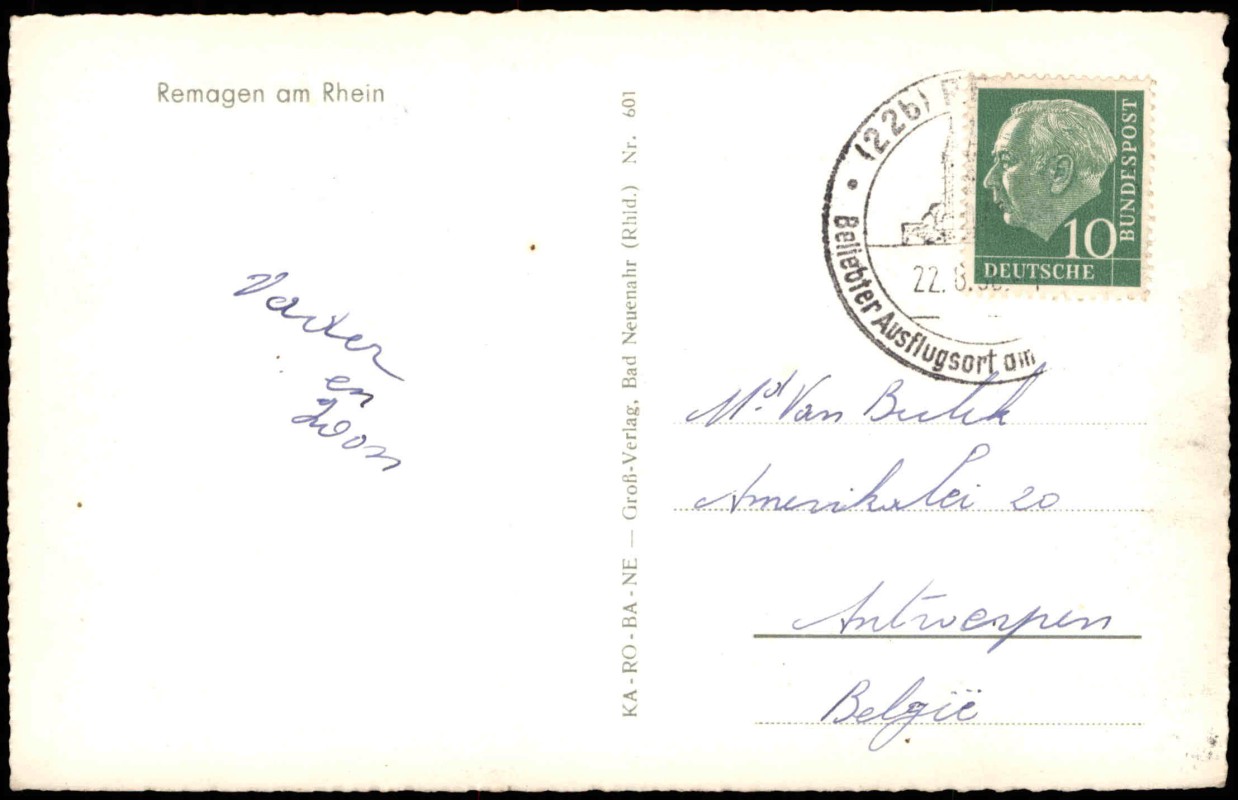 Remagen am Rhein
Vader
en
Zoon
KA-RO-BA-NE — Groß-Verlag, Bad Neuenahr (Rhld.) Nr. 601
(22b)
Beliebter Ausflugsort am
22.
10
DEUTSCHE
BUNDESPOST
Md. Van
Amerikalei 20
Antwerpen
België